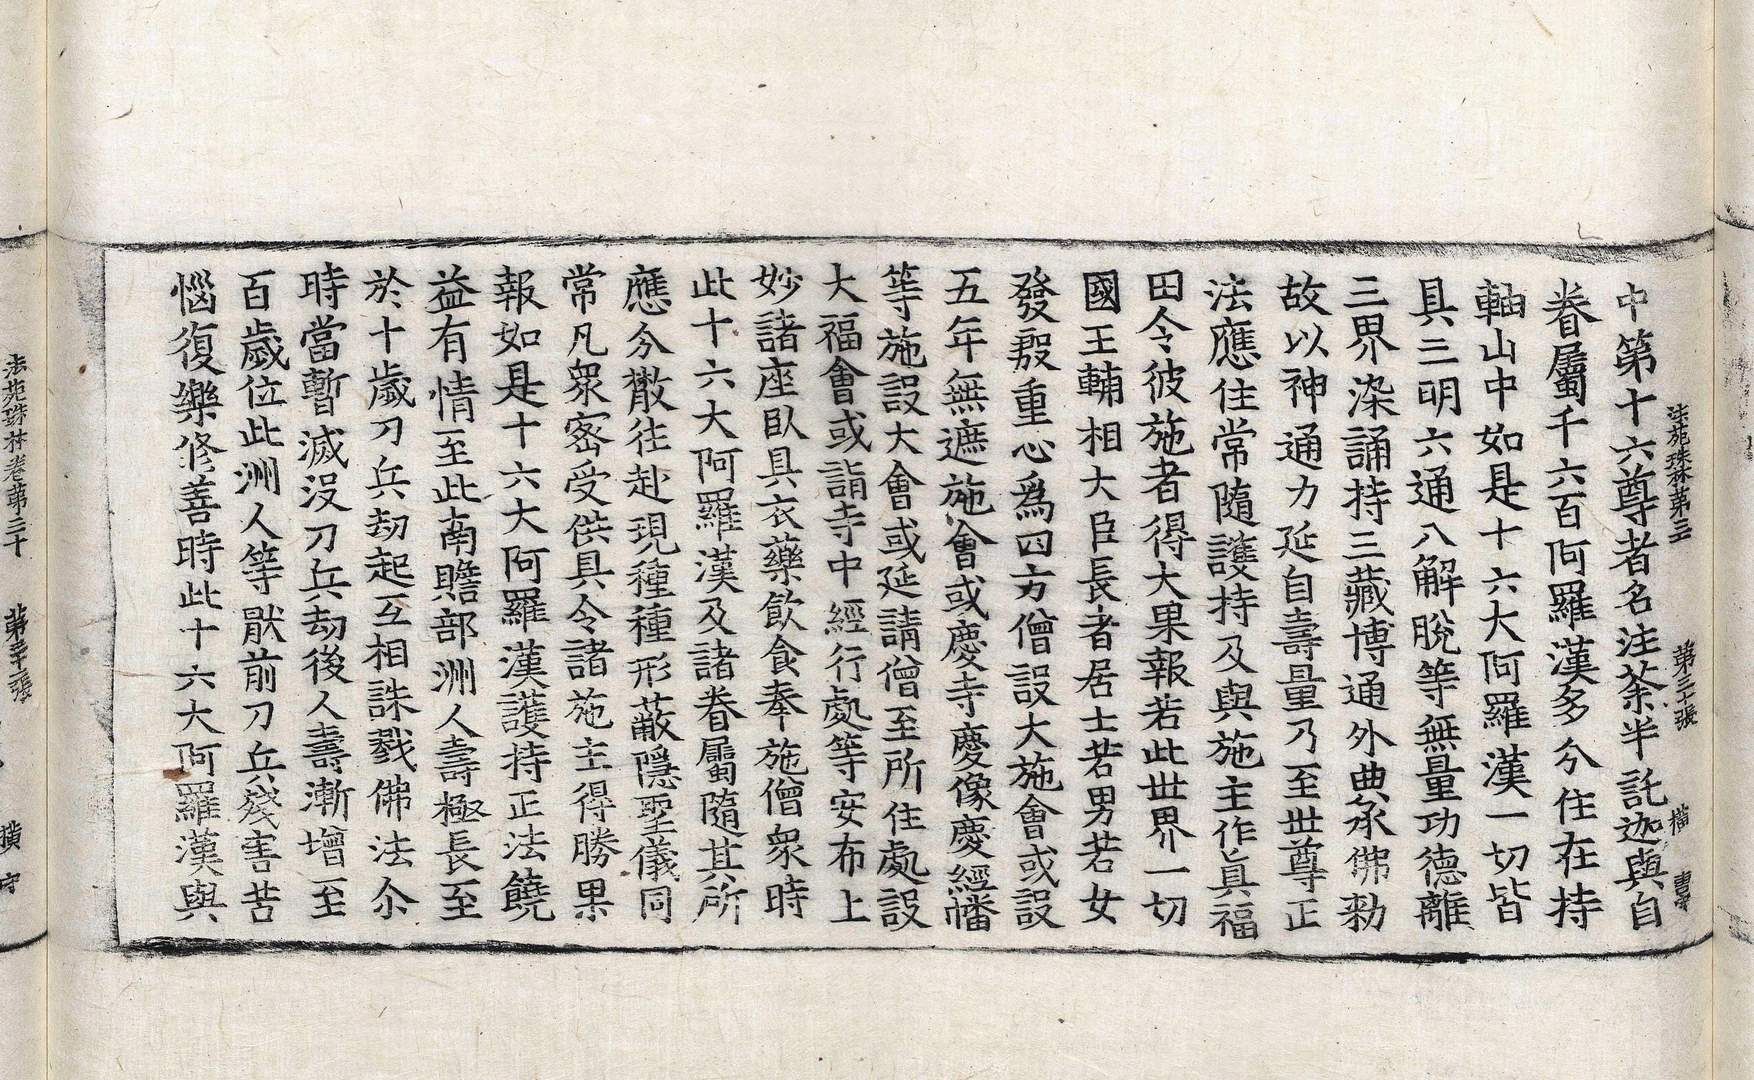 法苑珠林第三十　第三十張　橫　書字
中第十六尊者名注荼半託迦與自
眷屬千六百阿羅漢多分住在持
軸山中如是十六大阿羅漢一切皆
具三明六通八解脫等無量功德離
三界染誦持三藏博通外典承佛勅
故以神通力延自壽量乃至世尊正
法應住常隨護持及與施主作眞福
田令彼施者得大果報若此世界一切
國王輔相大臣長者居士若男若女
發殷重心爲四方僧設大施會或設
五年無遮施會或慶寺慶像慶經幡
等施設大會或延請僧至所住處設
大福會或詣寺中經行處等安布上
妙諸座臥具衣藥飲食奉施僧衆時
此十六大阿羅漢及諸眷屬隨其所
應分散往赴現種種形蔽隱聖儀同
常凡衆密受供具令諸施主得勝果
報如是十六大阿羅漢護持正法饒
益有情至此南贍部洲人壽極長至
於十歲刀兵劫起互相誅戮佛法尒
時當暫滅沒刀兵劫後人壽漸增至
百歲位此洲人等厭前刀兵殘害苦
惱復樂修善時此十六大阿羅漢與
法苑珠林卷第三十　第三十一張　橫　守